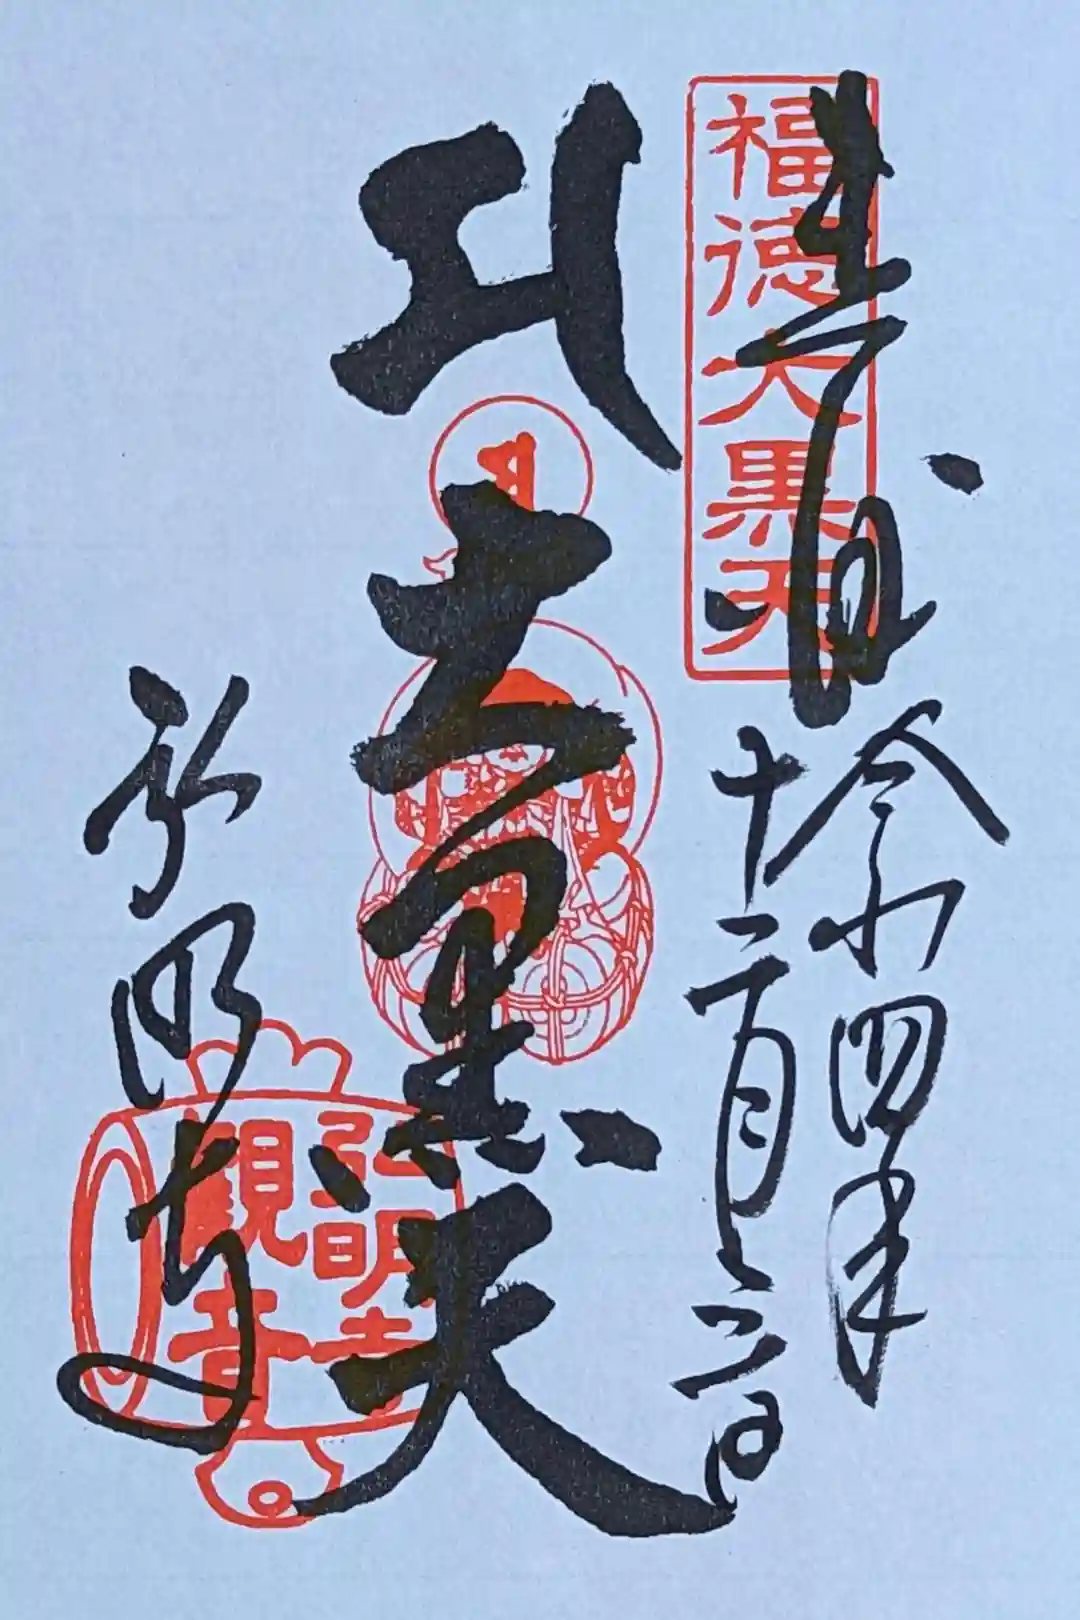 奉拝
福徳大黒天
令和四年
十二月
大黒天
弘明寺
弘明寺
觀音